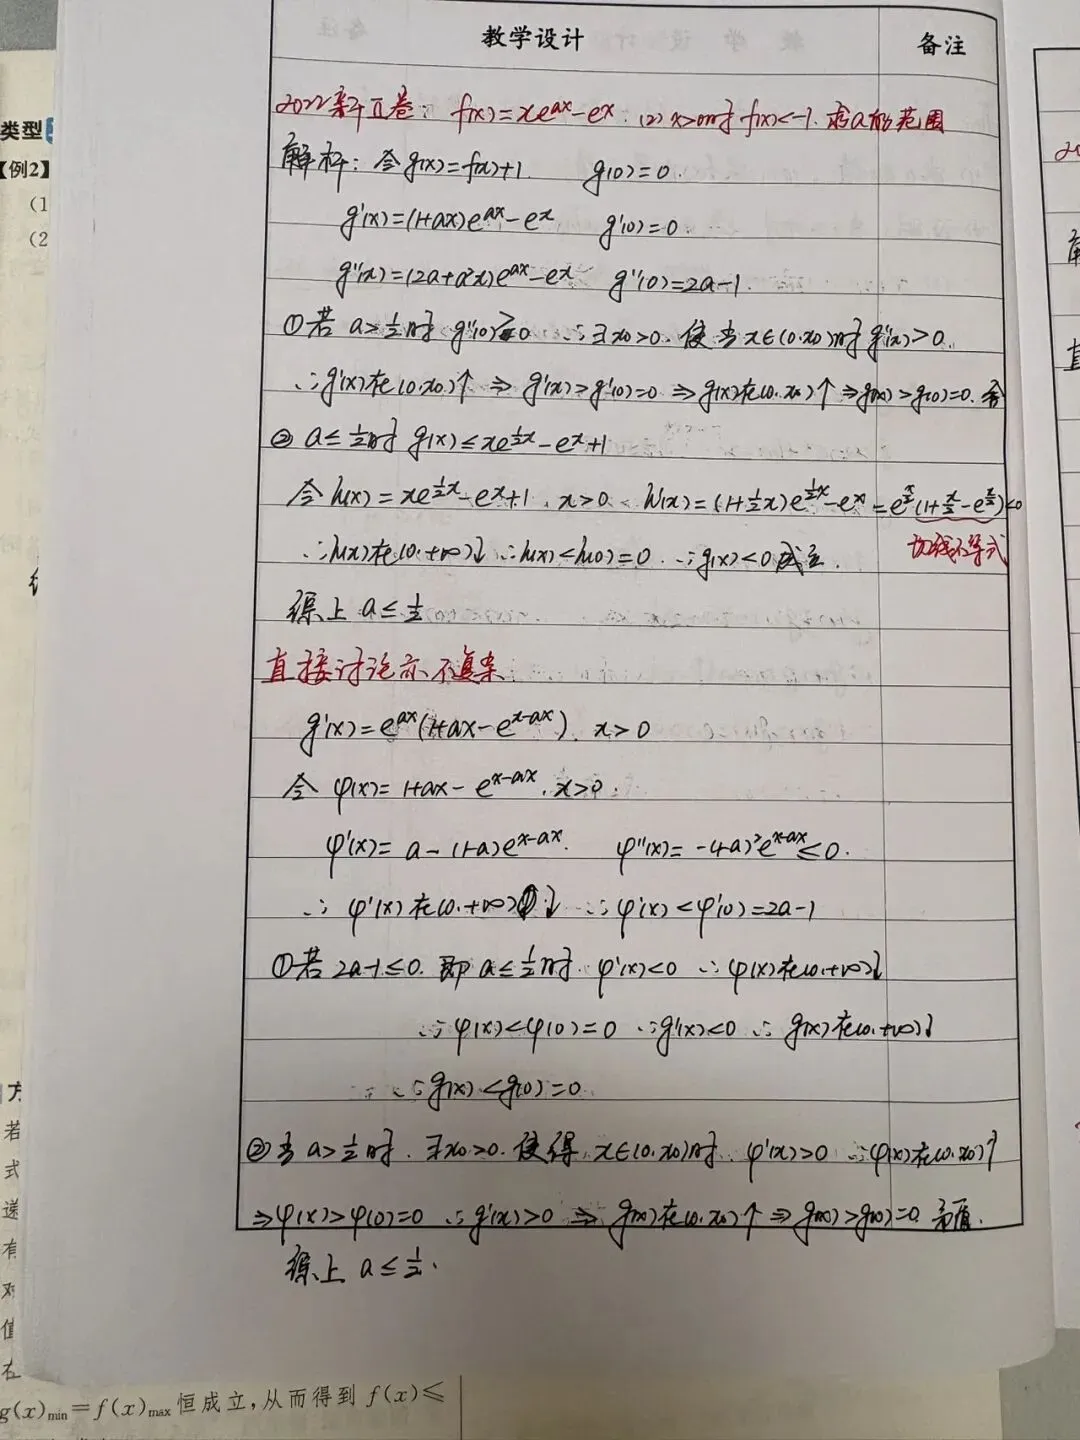 教学设计
备注
2022新Ⅱ卷: f(x)=xe^{ax}-e^x. (2) x>0时 f(x)<-1. 求a的范围
解析: 令g(x)=f(x)+1 g(0)=0.
g'(x)=(1+ax)e^{ax}-e^x g'(0)=0.
g''(x)=(2a+a²x)e^{ax}-e^x g''(0)=2a-1.
①若 a>1/2时 g''(0)>0 ∴∃x₀>0. 使当x∈(0.x₀)时g''(x)>0.
∴g'(x)在(0.x₀)↑ ⇒ g'(x)>g'(0)=0 ⇒g(x)在(0.x₀)↑⇒g(x)>g(0)=0. 舍
② a≤1/2时 g(x)≤xe^{1/2x}-e^x+1
令h(x)=xe^{1/2x}-e^x+1. x>0. h'(x)=(1+1/2x)e^{1/2x}-e^x=e^{x/2}(1+x/2-e^{x/2})<0
切线不等式
∴h(x)在(0.+∞)↓ ∴h(x)<h(0)=0. ∴g(x)<0成立.
综上 a≤1/2
直接讨论亦不复杂
g'(x)=e^{ax}(1+ax-e^{x-ax}). x>0
令 φ(x)=1+ax-e^{x-ax}. x>0.
φ'(x)=a-(1-a)e^{x-ax}. φ''(x)=-(1-a)²e^{x-ax}≤0.
∴ φ'(x)在(0.+∞)↓ ∴φ'(x)<φ'(0)=2a-1
①若 2a-1≤0. 即 a≤1/2时. φ'(x)<0 ∴φ(x)在(0.+∞)↓
∴φ(x)<φ(0)=0 ∴g'(x)<0 ∴ g(x)在(0.+∞)↓
∴g(x)<g(0)=0.
②当 a>1/2时. ∃x₀>0. 使得 x∈(0.x₀)时. φ'(x)>0 ∴φ(x)在(0.x₀)↑
⇒φ(x)>φ(0)=0 ∴g'(x)>0 ⇒ g(x)在(0.x₀)↑⇒g(x)>g(0)=0. 矛盾.
综上 a≤1/2.
类型
【例2】
(1
(2
方
若
式
递
有
对
值
在
g(x)min=f(x)max恒成立,从而得到 f(x)≤